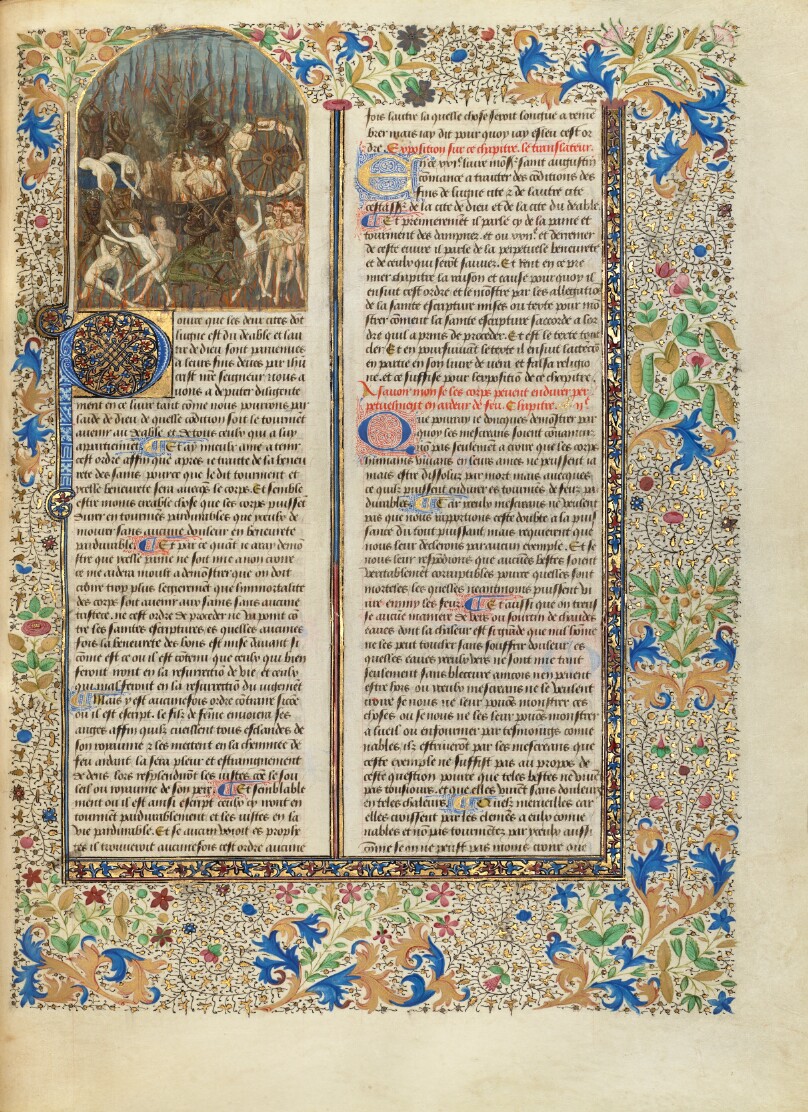 Pource que les deux cites dot
lugne est du deable et lau
tre de dieu sont parvenues
a leurs fins deues par ihũ
crist nr̃e seigneur Nous a
uons a disputer diligente
ment en ce liure tant cõme nous pourrons par
laide de dieu de quelle cõdition soit le tourment
auenir au deable et de tous ceulx qui a luy
appartiennent. Et iay mieulx ame a tenir
cest ordre affin que apres ie traitte de la beneu
rete des sains pource que le dit tourment et
celle beneurete sera auecqs le corps. Et semble
estre moins creable chose que les corps puissẽt
durer en tourmẽs pardurables que ceulx de
mourer sans aucune douleur en beneurete
pardurable. Et par ce quãt ie aray demõ
stre que celle paine ne soit mie a non croire
ce me aidera moult a demõstrer que on doit
croire trop plus legierement que limmortalite
des corps soit auenir aux sains sans aucune
tristece. ne cest ordre de proceder ne va point cõ
tre les saintes escriptures es quelles aucunes
fois la beneurete des bons est mise deuant si
cõme est ce ou il est cõtenu que ceulx qui bien
feront iront en la resurrectiõ de vie et ceulx
qui mal feront en la resurrectiõ du iugemẽt
Mais y est aucunesfois ordre cõtraire sicõe
ou il est escript. le filz de fẽme enuoiera ses
anges affin quilz cueillent tous esclandes de
son royaume ⁊ les mettent en la cheminee de
feu ardant. la sera pleur et estraignement
de dens lors resplendirõt les iustes cõe le sou
leil ou royaume de son pere. Et semblable
ment ou il est ainsi escript ceulx cy iront en
tourment pardurablement et les iustes en la
vie pardurable. Et se aucun vouloit es prophe
tes il trouueroit aucunesfois cest ordre aucune
fois lautre la quelle chose seroit longue a reme
brer mais iay dit pour quoy iay esleu cest or
dre Exposition sur ce chapitre. le translateur.
En ce xxjᵉ. liure mõsʳ. saint augustin
cõmance a traiter des cõditions des
fins de lugne cite ⁊ de lautre cite
cest assʳ. de la cite de dieu et de la cite du deable.
Et premieremẽt il parle cy de la paine et
tourment des dampnez. et ou xxijᵉ. et derrenier
de ceste euure il parle de la perpetuele beneurete
et de ceulx qui serõt sauuez. Et rent en ce pre
mier chapitre la raison et cause pour quoy il
ensuit cest ordre et le mõstre par les allegatiõs
de la sainte escripture mises ou texte pour mõ
strer cõment la sainte escripture saccorde a lor
dre quil a prins de proceder. Et est le texte tout
cler Et en poursuiuãt le texte il ensuit lactẽcõ
en partie en son liure de vera et falsa religio
ne. et ce suffise pour lexpositiõ de ce chapitre.
A sauoir mon se les corps peuent endurer per
petuelment en ardeur de feu. Chapitre. ijᵉ.
Que pourray ie doncques demõstrer par
quoy les mescreans soient conuaincus
nõ pas seulemẽt a croire que les corps
humains viuans en leurs ames ne puissent ia
mais estre dissoluz par mort mais auecques
ce quilz puissent endurer es tourmẽs de feuz par
durables. Car ceulx mescreans ne veulent
pas que nous rapportions ceste doubte a la puis
sance du tout puissant mais requierent que
nous leur declerons par aucun exemple. Et se
nous leur respõdons que aucũes bestes soient
veritablemẽt corruptibles pource quelles sont
morteles les quelles neantmoins puissent vi
ure enmy les feuz. Et aussi que on treuue
se aucune maniere de vers ou sourtin de chaudes
eaues dont la chaleur est si grãde que nul hõme
ne les peut toucher sans souffrir douleur. es
quelles eaues ceulx vers ne sont mie tant
seulement sans blecure aincois nen peuent
estre hors ou ceulx mescreans ne le veulent
croire se nous ne leur pouõs monstrer ces
choses ou se nous ne les leur pouõs monstrer
a lueil ou enfourmer par tesmoings conue
nables. ilz estriueront par les mescreans que
ceste exemple ne suffist pas au propos de
ceste question pource que teles bestes ne viuẽt
pas tousiours. et que elles viuẽt sans douleurs
en teles chaleurs. Oiez merueilles car
elles croissent par les elemẽs a eulx conue
nables et nõ pas tourmẽtez par yceulx aussi
cõme se on ne peust pas moins croire que